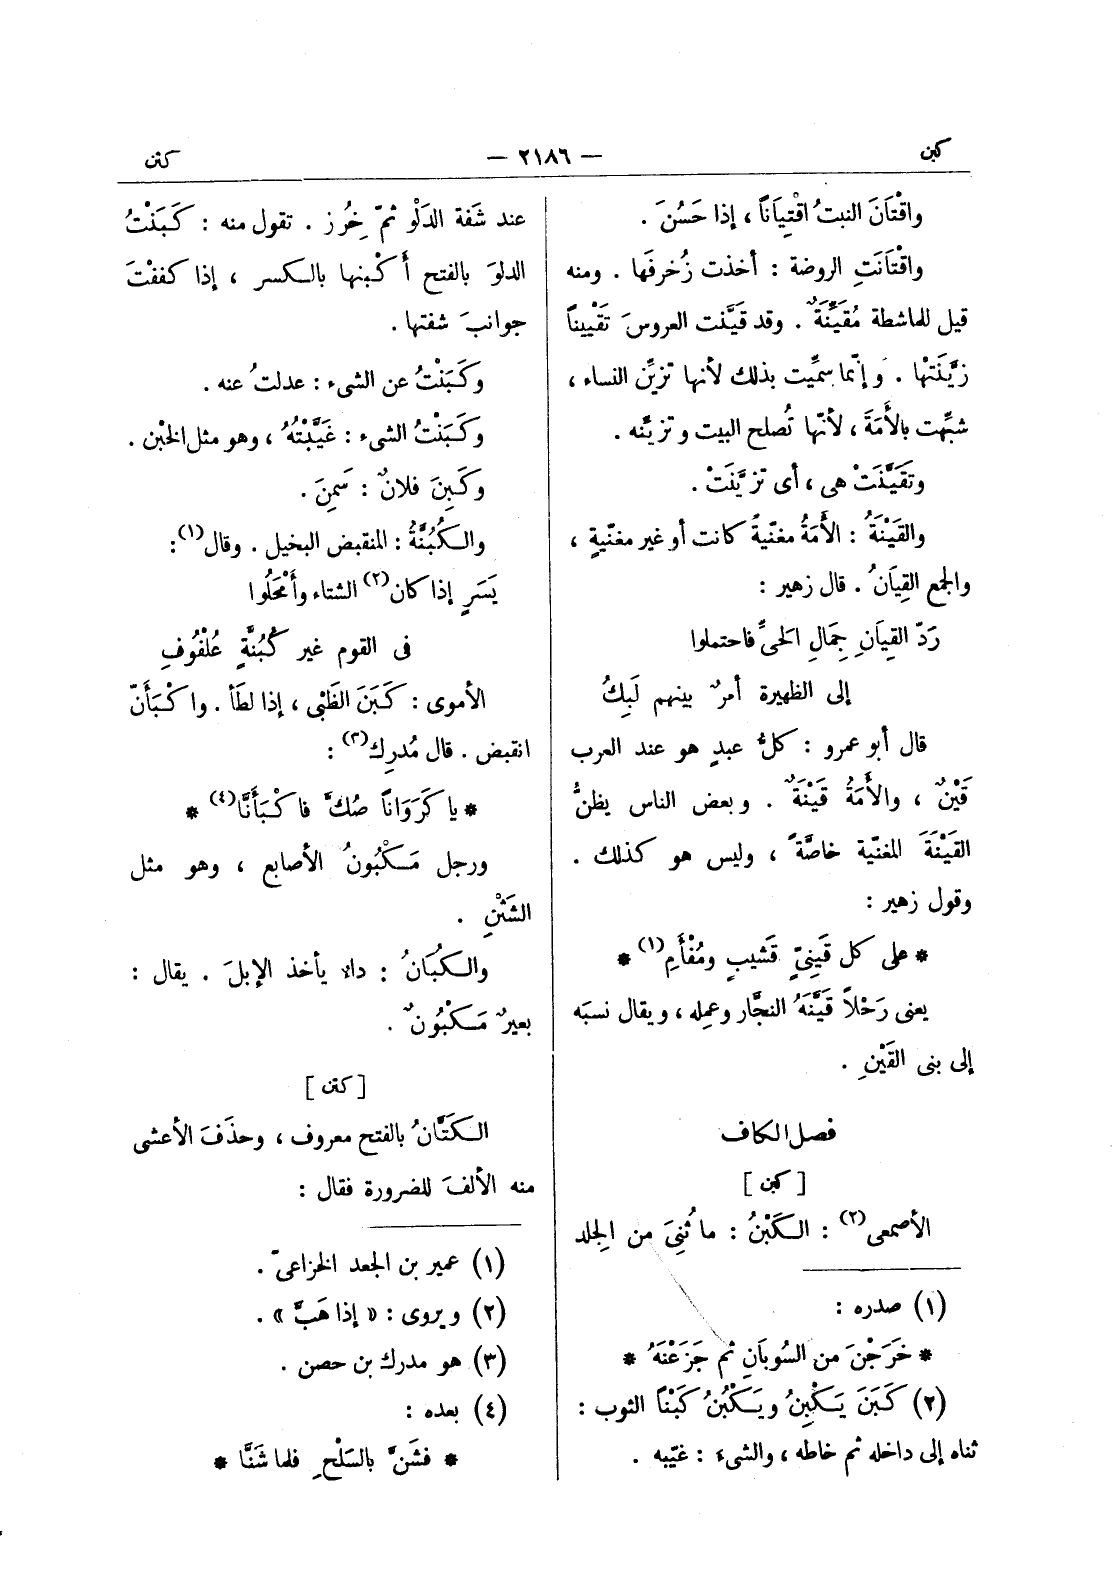 كبن
— ٢١٨٦ —
كتن
واقْتَانَ النبتُ اقْتِيَاناً ، إذا حَسُنَ .
واقْتَانَتِ الروضة : أخذت زُخرفَها . ومنه
قيل للماشطة مُقَيِّنَةٌ . وقد قَيَّنت العروسَ تَقْييناً
زيَّنَتْها . وإنّما سمِّيت بذلك لأنها تزيِّن النساء ،
شبِّهت بالأَمَة ، لأنّها تُصلح البيت وتزيّنه .
وتقَيَّنَتْ هى ، أى تزيَّنَتْ .
والقَيْنَةُ : الأَمَةُ مغنّيةً كانت أو غير مغنّيةٍ ،
والجمع القِيَانُ . قال زهير :
رَدّ القِيَانِ جِمَالِ الحىِّ فاحتملوا
إلى الظهيرة أمرٌ بينهم لَبِكُ
قال أبو عمرو : كلُّ عبدٍ هو عند العرب
قَيْنٌ ، والأَمَةُ قَيْنَةٌ . وبعض الناس يظنُّ
القَيْنَةَ المغنّية خاصَّةً ، وليس هو كذلك .
وقول زهير :
* على كل قَينِىٍّ قَشيبٍ ومُفْأَمِ (١) *
يعنى رَحْلاً قَيَّنَهُ النجَّار وعمِله ، ويقال نسبَه
إلى بنى القَيْنِ .
فصل الكاف
[ كبن ]
الأصمعى (٢) : الكَبْنُ : ما ثُنِىَ من الجلد
(١) صدره :
* خَرَجْنَ من السُوبَانِ ثم جَزَعْنَهُ *
(٢) كَبَنَ يَكْبِنُ ويَكْبُنُ كَبْناً الثوب :
ثناه إلى داخله ثم خاطه ، والشىء : غيّبه .
عند شَفة الدَلْوِ ثمّ خِرُز . تقول منه : كَبَنْتُ
الدلوَ بالفتح أَكْبِنها بالكسر ، إذا كففْتَ
جوانبَ شفتها .
وكَبَنْتُ عن الشىء : عدلتُ عنه .
وكَبَنْتُ الشىء : غَيَّبْتُهُ ، وهو مثل الخَبْن .
وكَبِنَ فلانٌ : سَمِنَ .
والكُبُنَّةُ : المنقبض البخيل . وقال (١) :
يَسَرٍ إذا كان (٢) الشتاء وأَمْحَلُوا
فى القوم غير كُبُنَّةٍ عُلْفُوفِ
الأموى : كَبَنَ الظَبْى ، إذا لطَأ . واكْبَأَنّ
انقبض . قال مُدرِك (٣) :
* يا كَرَوَاناً صُكَّ فاكْبَأَنَّا (٤) *
ورجل مَكْبُونُ الأصابع ، وهو مثل
الشَثْنِ .
والكُبَانُ : داء يأخذ الإبلَ . يقال :
بعيرٌ مَكْبُونٌ .
[ كتن ]
الكَتَّانُ بالفتح معروف ، وحذَفَ الأعشى
منه الألفَ للضرورة فقال :
(١) عمير بن الجعد الخزاعىّ .
(٢) ويروى : « إذا هَبَّ » .
(٣) هو مدرك بن حصن .
(٤) بعده :
* فشَنَّ بالسَلْحِ فلما شَنَّا *